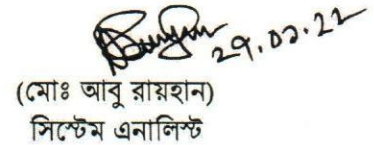 29.03.22
(মোঃ আবু রায়হান)
সিস্টেম এনালিস্ট